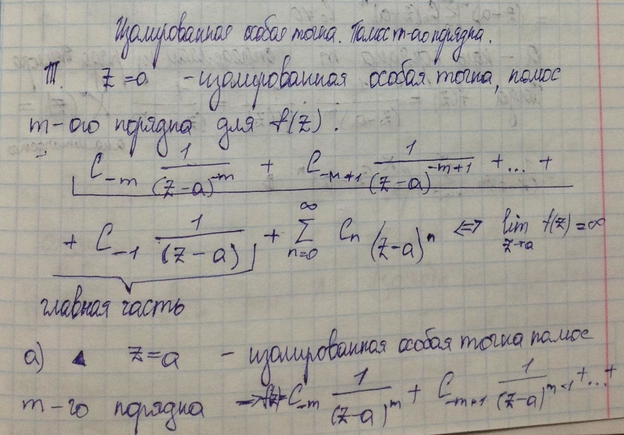 Изолированная особая точка. Полюс m-ого порядка.
Т. z=a - изолированная особая точка, полюс
m-ого порядка для f(z).
C_{-m} \frac{1}{(z-a)^{-m}} + C_{-m+1} \frac{1}{(z-a)^{-m+1}} +...+
+ C_{-1} \frac{1}{(z-a)} + \sum_{n=0}^{\infty} C_n (z-a)^n <=> \lim_{z→a} f(z)=∞
главная часть
а) z=a - изолированная особая точка полюс
m-го порядка => f(z)= C_{-m} \frac{1}{(z-a)^m} + C_{-m+1} \frac{1}{(z-a)^{m-1}} +...+